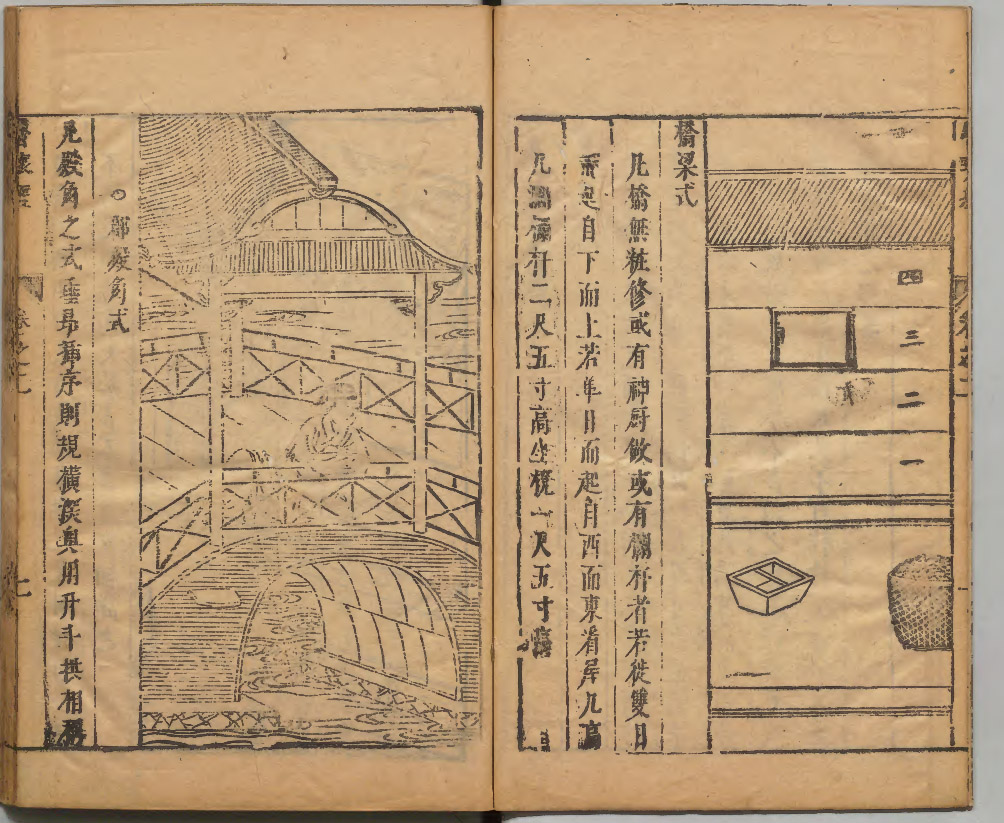 四
三
二
一
橋梁式
凡橋無粧修或有神厨做或有欄杆者若從雙日
而起自下而上若单日而起自西而東看屋几高
几濶欄杆二尺五寸高坐櫈一尺五寸
○郡殿角式
凡殿角之式垂昂挿序則規橫深奥用升斗拱相稱
卷之
七